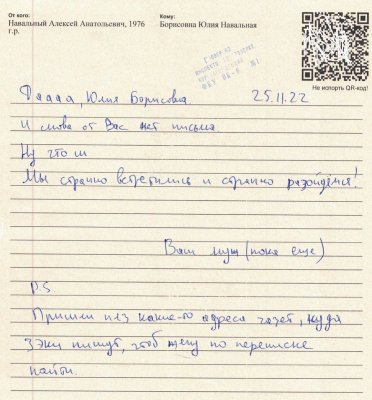 От кого:
Навальный Алексей Анатольевич, 1976
г.р.
Кому:
Борисовна Юлия Навальная
Не испорть QR-код!
Даааа, Юлия Борисовна.
25.11.22
И снова от Вас нет письма.
Ну что ш
Мы странно встретились и странно разойдёмся!
Ваш муж (пока еще)
PS
Пришли плз какие-то адреса газет, куда
зэки пишут, чтоб жену по переписке
найти.